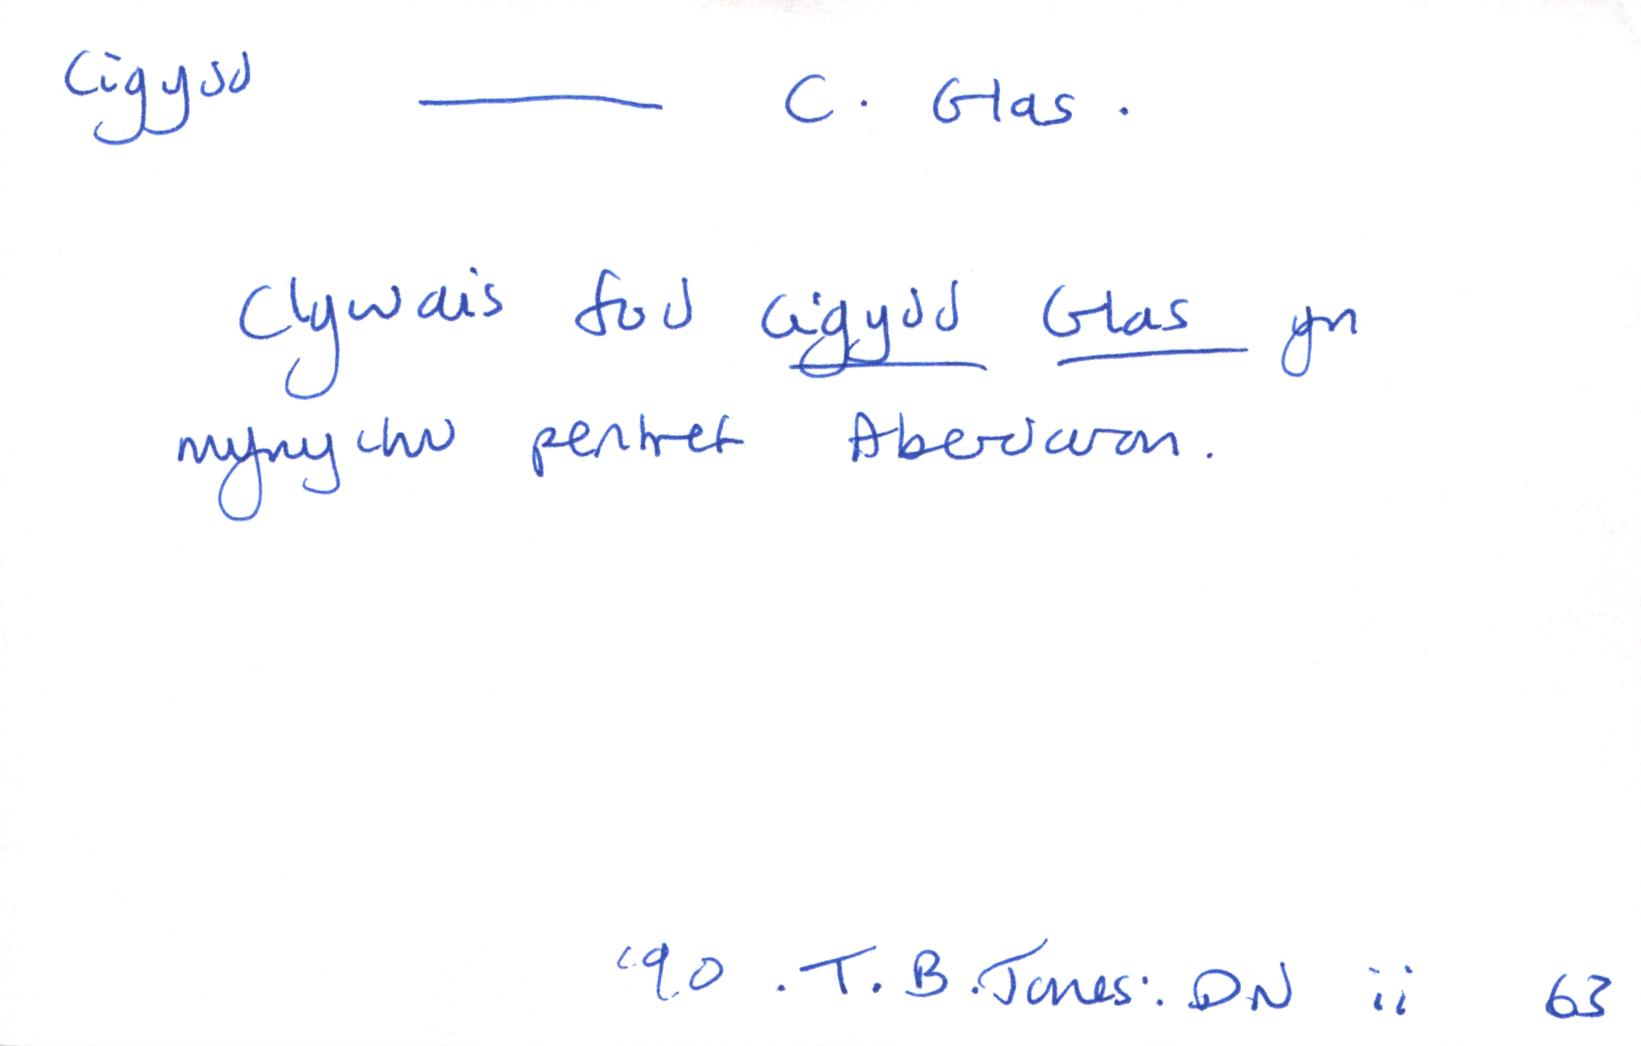 Cigydd — C. Glas.
Clywais fod Cigydd Glas yn
mynychu pentref Aberdaron.
'90. T. B. Jones: DN ii 63